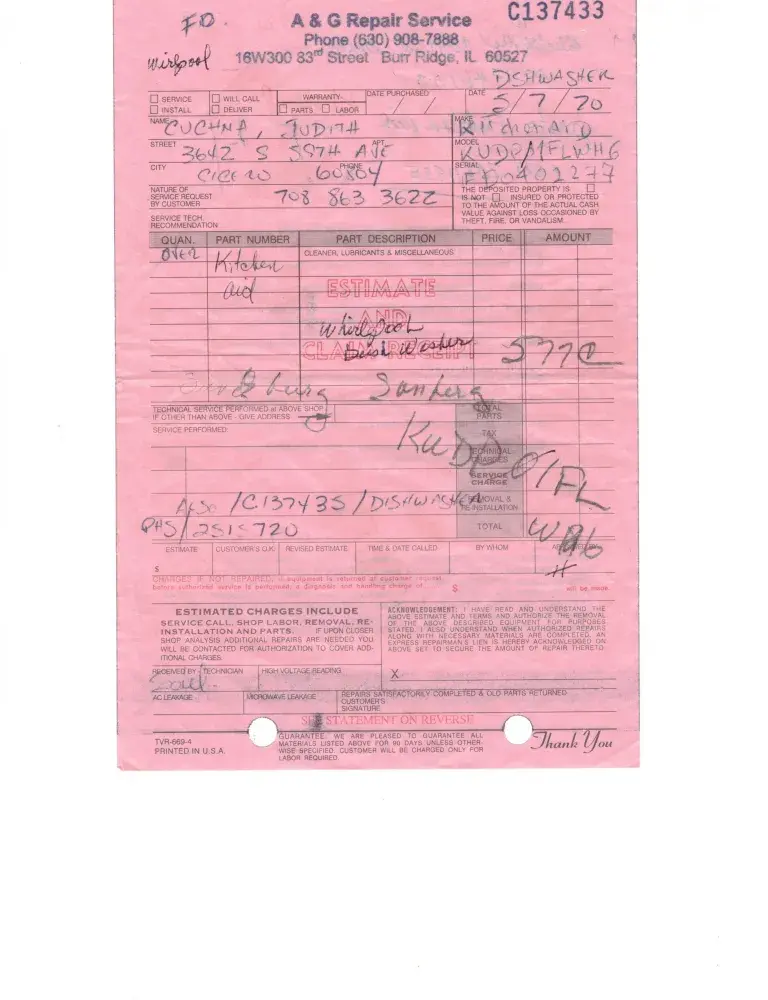 FD.
A & G Repair Service
C137433
Phone (630) 908-7888
Wirlpool
16W300 83rd Street Burr Ridge, IL 60527
DSHWASHER
SERVICE WILL CALL WARRANTY DATE PURCHASED DATE 5/7/20
INSTALL DELIVER PARTS LABOR / /
NAME CUCHNA, JUDITH MAKE
STREET 3642 S 55TH AVE APT. MODEL
CITY CICERO 60804 PHONE SERIAL FD0402277
NATURE OF SERVICE REQUEST BY CUSTOMER 708 863 3622
THE DEPOSITED PROPERTY IS
IS NOT INSURED OR PROTECTED
TO THE AMOUNT OF THE ACTUAL CASH
VALUE AGAINST LOSS OCCASIONED BY
THEFT, FIRE, OR VANDALISM.
SERVICE TECH.
RECOMMENDATION
QUAN. PART NUMBER PART DESCRIPTION PRICE AMOUNT
OVER Kitchen CLEANER, LUBRICANTS & MISCELLANEOUS
aid ESTIMATE
AND
Whirlpool
CLAIM RECEIPT
Dish Washer
TECHNICAL SERVICE PERFORMED at ABOVE SHOP
IF OTHER THAN ABOVE - GIVE ADDRESS
TOTAL PARTS
SERVICE PERFORMED:
TAX
KUDPO1FL
TECHNICAL CHARGES
SERVICE CHARGE
Also /C137435/DISHWASHER
REMOVAL & REINSTALLATION
2515720
TOTAL
ESTIMATE CUSTOMER'S O.K. REVISED ESTIMATE TIME & DATE CALLED BY WHOM
$
CHARGES IF NOT REPAIRED: If equipment is returned at customer request
before authorized service is performed, a diagnosis and handling charge of $ will be made.
ESTIMATED CHARGES INCLUDE
SERVICE CALL, SHOP LABOR, REMOVAL, RE-
INSTALLATION AND PARTS. IF UPON CLOSER
SHOP ANALYSIS ADDITIONAL REPAIRS ARE NEEDED YOU
WILL BE CONTACTED FOR AUTHORIZATION TO COVER ADD-
ITIONAL CHARGES.
ACKNOWLEDGEMENT: I HAVE READ AND UNDERSTAND THE
ABOVE ESTIMATE AND TERMS AND AUTHORIZE THE REMOVAL
OF THE ABOVE DESCRIBED EQUIPMENT FOR PURPOSES
STATED. I ALSO UNDERSTAND WHEN AUTHORIZED REPAIRS
ALONG WITH NECESSARY MATERIALS ARE COMPLETED, AN
EXPRESS REPAIRMAN'S LIEN IS HEREBY ACKNOWLEDGED ON
ABOVE SET TO SECURE THE AMOUNT OF REPAIR THERETO.
RECEIVED BY - TECHNICIAN HIGH VOLTAGE READING X
AC LEAKAGE MICROWAVE LEAKAGE REPAIRS SATISFACTORILY COMPLETED & OLD PARTS RETURNED
CUSTOMER'S
SIGNATURE
SEE STATEMENT ON REVERSE
TVR-669-4
PRINTED IN U.S.A.
GUARANTEE: WE ARE PLEASED TO GUARANTEE ALL
MATERIALS LISTED ABOVE FOR 90 DAYS UNLESS OTHER-
WISE SPECIFIED. CUSTOMER WILL BE CHARGED ONLY FOR
LABOR REQUIRED.
Thank You